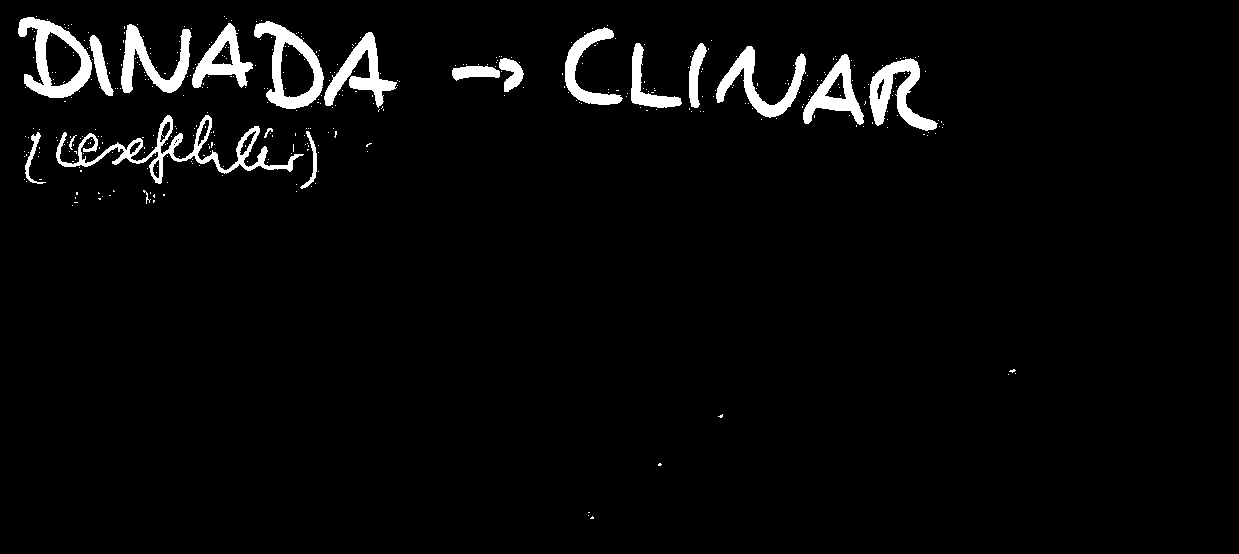 DINADA → CLINAR
(Lesefehler)